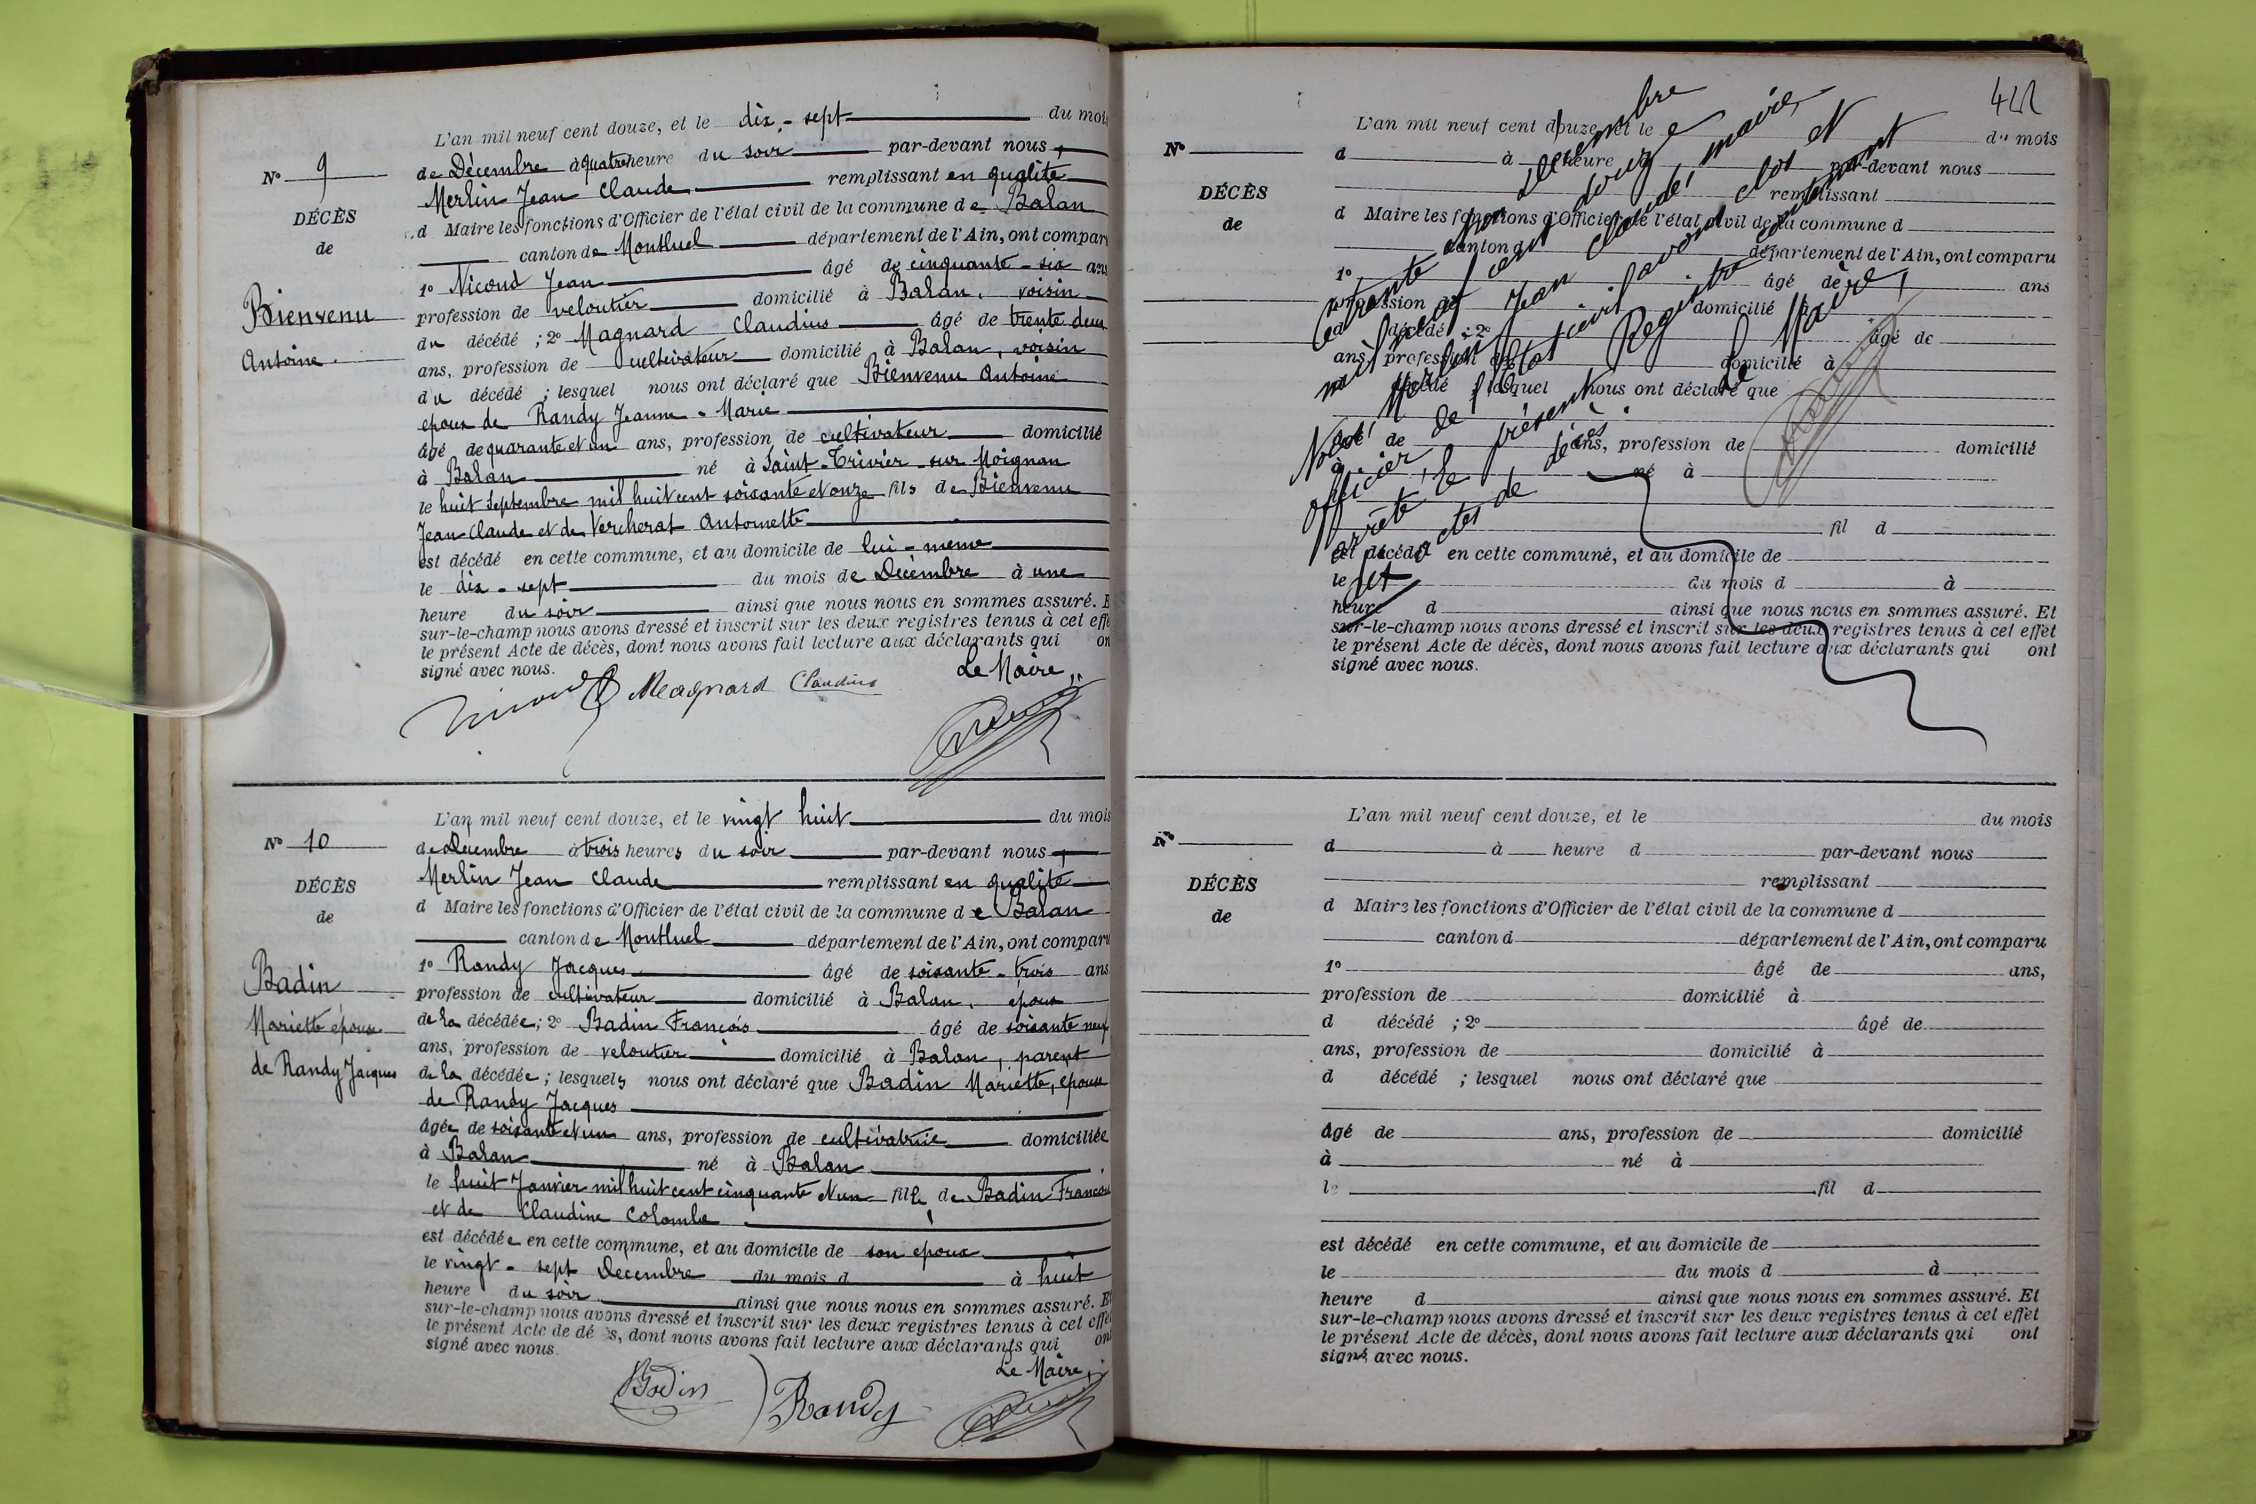 L'an mil neuf cent douze, et le dix-sept du mois
de Décembre à quatre heure du soir par-devant nous,
Merlin Jean Claude remplissant en qualité
d Maire les fonctions d'Officier de l'état civil de la commune de Balan
canton de Montluel département de l'Ain, ont comparu
1° Nicoud Jean âgé de cinquante-six ans
profession de veloutier domicilié à Balan, voisin
du décédé ; 2° Magnard Claudius âgé de trente deux
ans, profession de cultivateur domicilié à Balan, voisin
du décédé ; lesquel nous ont déclaré que Bienvenu Antoine
epoux de Randy Jeanne-Marie
âgé de quarante et un ans, profession de cultivateur domicilié
à Balan né à Saint-Trivier-sur Moignan
le huit Septembre mil huit cent soixante et onze fils de Bienvenu
Jean Claude et de Vercherat Antoinette
est décédé en cette commune, et au domicile de lui-meme
le dix-sept du mois de Décembre à une
heure du soir ainsi que nous nous en sommes assuré. E
sur-le-champ nous avons dressé et inscrit sur les deux registres tenus à cet effe
le présent Acte de décès, dont nous avons fait lecture aux déclarants qui on
signé avec nous.
Le Maire,
Nicoud Magnard Claudius
N° 9
DÉCÈS
de
Bienvenu
Antoine.
L'an mil neuf cent douze, et le vingt huit du mois
de Decembre à trois heures du soir par-devant nous,
Merlin Jean Claude remplissant en qualité
d Maire les fonctions d'Officier de l'état civil de la commune de Balan
canton de Montluel département de l'Ain, ont comparu
1° Randy Jacques âgé de soixante-trois ans
profession de cultivateur domicilié à Balan, époux
de la décédée ; 2° Badin François âgé de soixante neuf
ans, profession de veloutier domicilié à Balan, parent
de la décédée ; lesquels nous ont déclaré que Badin Mariette, epouse
de Randy Jacques
âgée de soixante et un ans, profession de cultivatrice domiciliée
à Balan né à Balan
le huit Janvier mil huit cent cinquante et un fille de Badin François
et de Claudine Colombe
est décédée en cette commune, et au domicile de son epoux
le vingt-sept Decembre du mois d à huit
heure du soir ainsi que nous nous en sommes assuré. E
sur-le-champ nous avons dressé et inscrit sur les deux registres tenus à cet effe
le présent Acte de décès, dont nous avons fait lecture aux déclarants qui ont
signé avec nous.
Le Maire,
Badin Randy
N° 10
DÉCÈS
de
Badin
Mariette épouse
de Randy Jacques
422
L'an mil neuf cent douze, et le du mois
d à heure d par-devant nous
remplissant
d Maire les fonctions d'Officier de l'état civil de la commune d
canton d département de l'Ain, ont comparu
1° âgé de ans
profession de domicilié à
d décédé ; 2° âgé de
ans, profession de domicilié à
d décédé ; lesquel nous ont déclaré que
âgé de ans, profession de domicilié
à né à
le fil d
est décédé en cette commune, et au domicile de
le du mois d à
heure d ainsi que nous nous en sommes assuré. Et
sur-le-champ nous avons dressé et inscrit sur les deux registres tenus à cet effet
le présent Acte de décès, dont nous avons fait lecture aux déclarants qui ont
signé avec nous.
N°
DÉCÈS
de
trente et un Decembre
mil neuf cent douze
Nous, Merlin Jean Claude, maire,
officier de l'état civil, avons clos et
arrêté le présent Registre contenant
dix actes de décès.
Le Maire,
L'an mil neuf cent douze, et le du mois
d à heure d par-devant nous
remplissant
d Maire les fonctions d'Officier de l'état civil de la commune d
canton d département de l'Ain, ont comparu
1° âgé de ans,
profession de domicilié à
d décédé ; 2° âgé de
ans, profession de domicilié à
d décédé ; lesquel nous ont déclaré que
âgé de ans, profession de domicilié
à né à
le fil d
est décédé en cette commune, et au domicile de
le du mois d à
heure d ainsi que nous nous en sommes assuré. Et
sur-le-champ nous avons dressé et inscrit sur les deux registres tenus à cet effet
le présent Acte de décès, dont nous avons fait lecture aux déclarants qui ont
signé avec nous.
N°
DÉCÈS
de